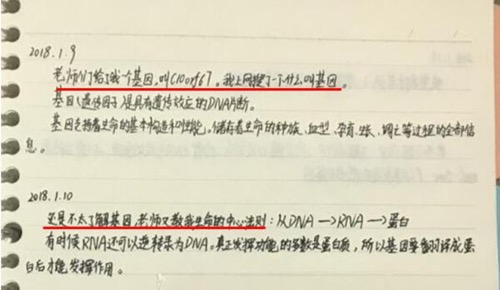 2018.1.9
老师们给了我个基因,叫C10orf67。我上网搜了一个什么叫基因。
基因(遗传因子)是具有遗传效应的DNA片断。
基因支持着生命的基本构造和性能。储存着生命的种族、血型、孕育、生长、凋亡等过程的全部信
息。
2018.1.10
还是不太了解基因,老师又教我生命的中心法则:从DNA→RNA→蛋白
有时候RNA还可以逆转录为DNA。真正发挥功能的多数是蛋白质,所以基因要翻译成蛋
白后才能发挥作用。